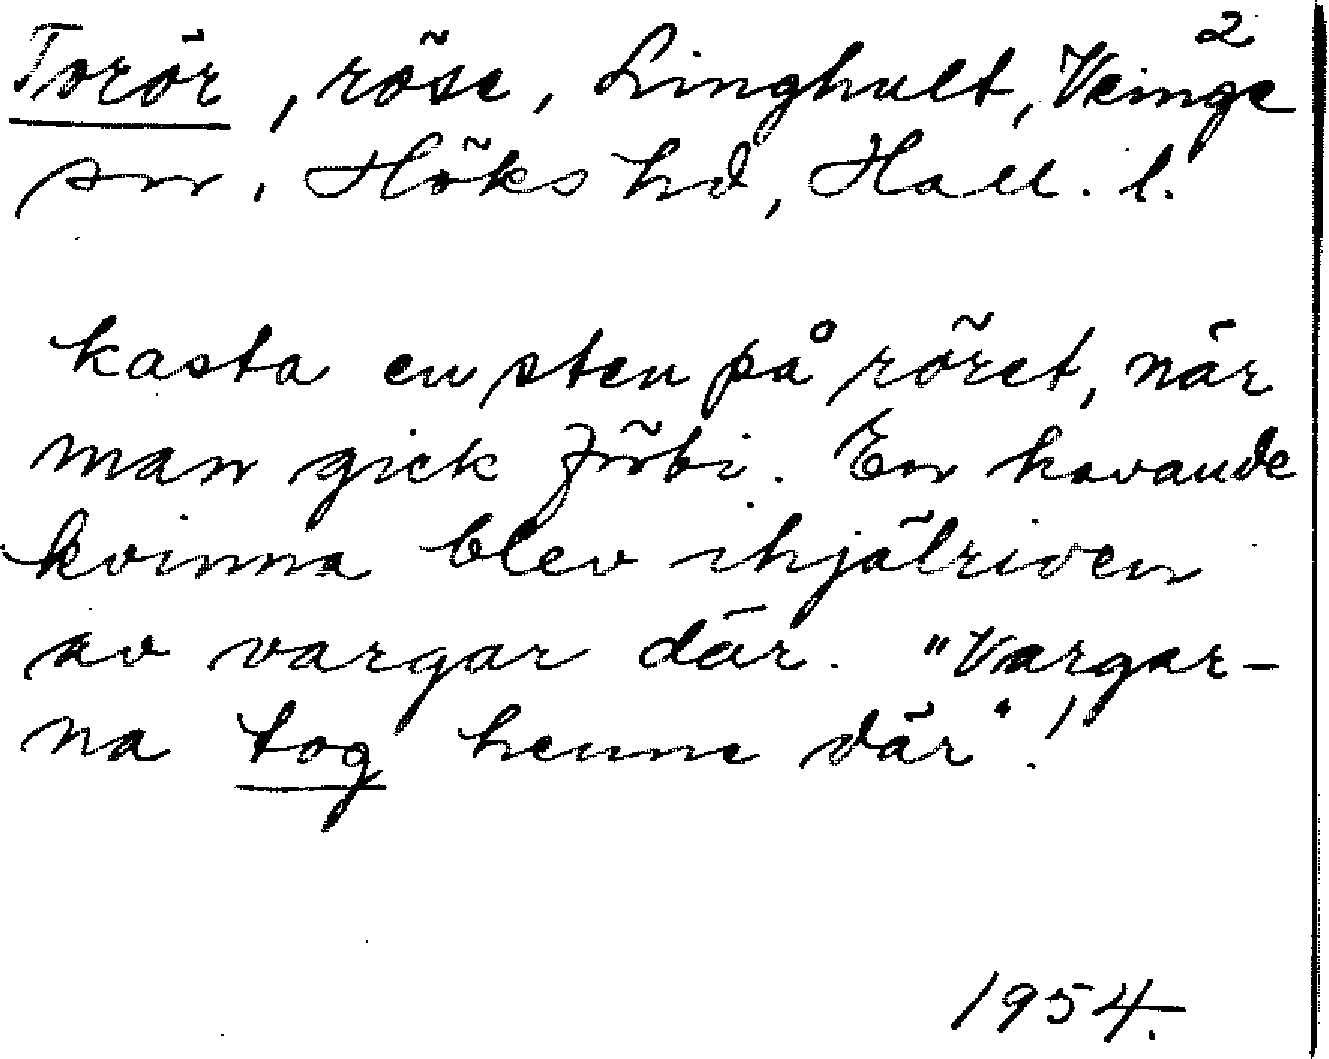 2
Torör, röse, Linghult, Veinge
sn, Höks hd, Hall. l.
kasta en sten på röret, när
man gick förbi. En havande
kvinna blev ihjälriven
av vargar där. "Vargar-
na tog henne där"!
1954.